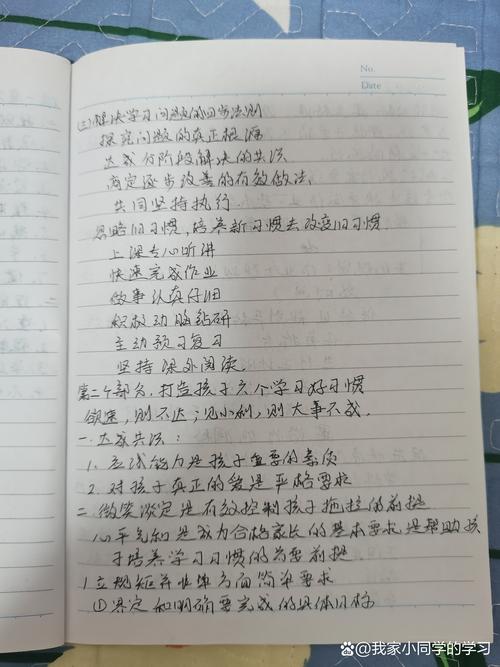 No.
Date
(三)解决学习问题的四步法则
探究问题的真正根源
达成分阶段解决的共识
商定逐步改善的有效做法
共同坚持执行.
忽略旧习惯,培养新习惯去改变旧习惯
上课专心听讲
快速完成作业
做事认真仔细
积极动脑钻研
主动预习复习
坚持课外阅读.
第二个部分,打造孩子六个学习好习惯
欲速,则不达;见小利,则大事不成.
一.达成共识:
1.应试能力是孩子重要的素质
2.对孩子真正的爱是严格要求
二.微笑淡定是有效控制孩子拖拉的前提
心平气和是成为合格家长的基本要求,是帮助孩
子培养学习习惯的首要前提
1.立规矩并非单方面简单要求
①界定和明确要完成的具体目标
@我家小同学的学习